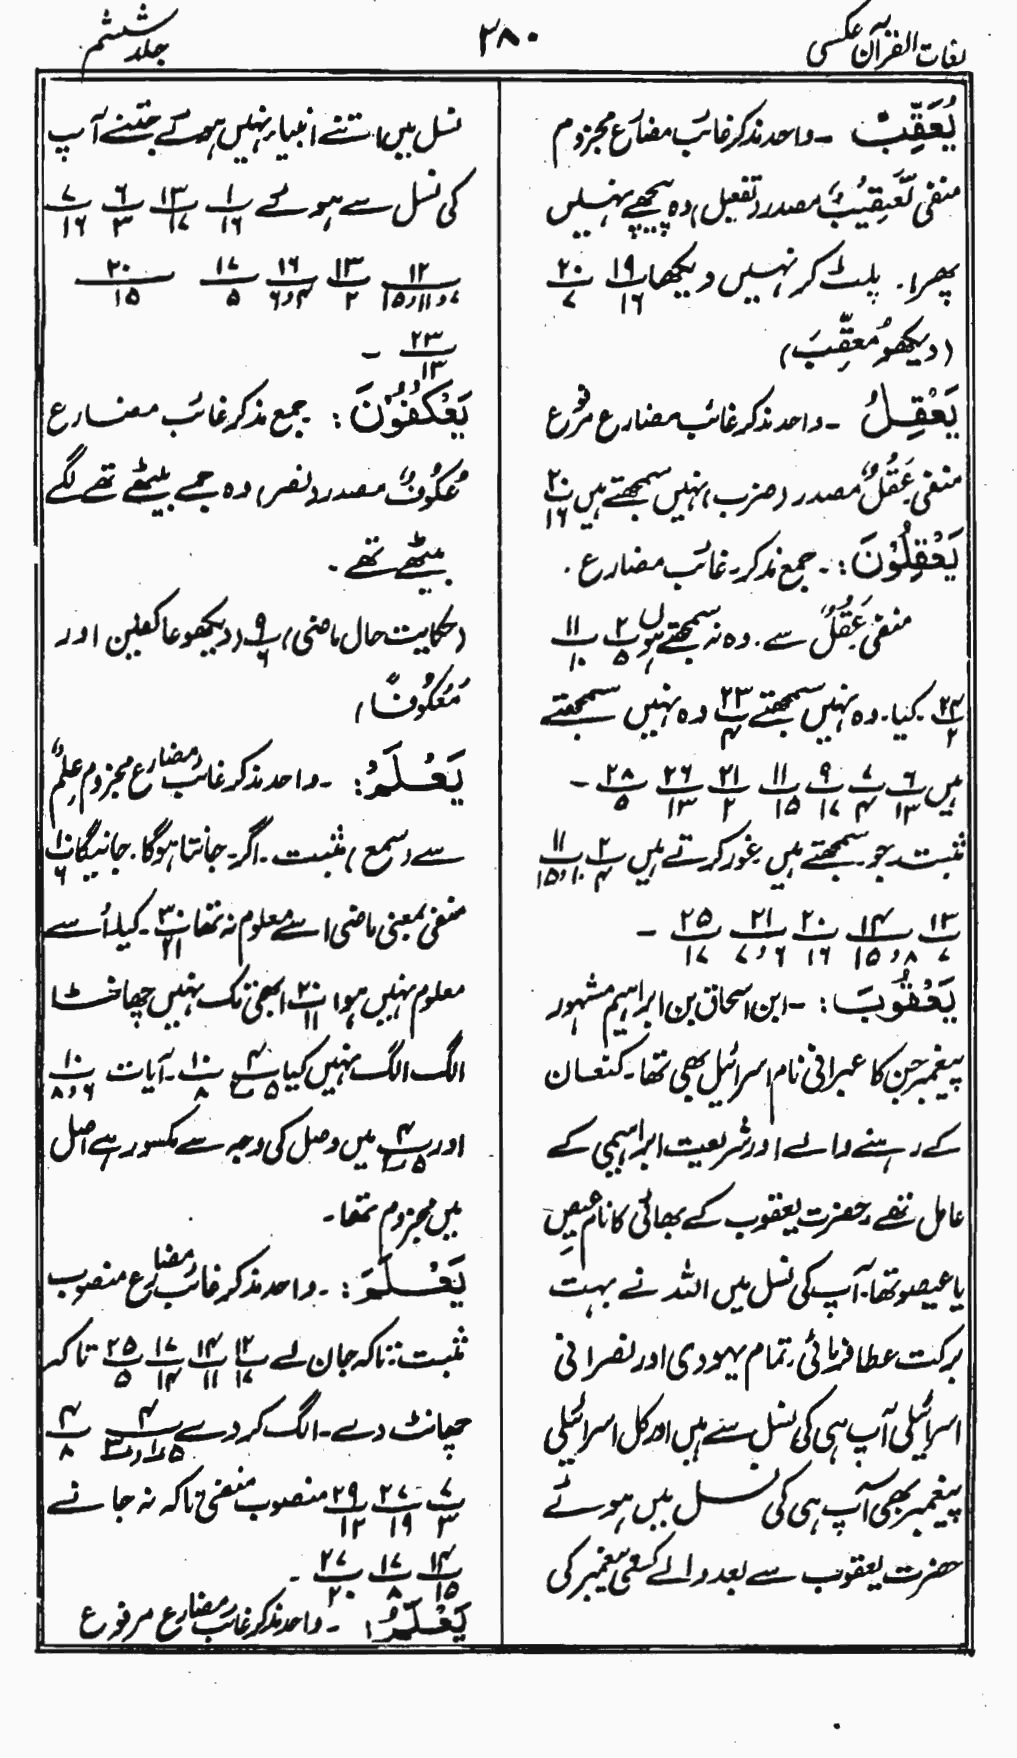 لغات القرآن عکسی
۳۸۰
جلد ششم
یُعَقِّبْ ـ واحد مذکر غائب مضارع مجزوم
منفی تَعْقِیْبٌ مصدر (تفعیل) وہ پیچھے نہیں
پھرا. پلٹ کر نہیں دیکھا ۱۹/۱۶ ۲۰/۷
(دیکھو مُعَقِّبَ)
یَعْقِلُ ـ واحد مذکر غائب مضارع مرفوع
منفی عَقْلٌ مصدر (ضرب) نہیں سمجھتے ہیں ۲۰/۱۶
یَعْقِلُوْنَ: ـ جمع مذکر ـ غائب مضارع .
منفی عَقْلٌ سے . وہ نہ سمجھتے ہوں ۲/۵ ۱۱/۱۰
۲۴/۲ کیا ـ وہ نہیں سمجھتے ۲۳/۴ وہ نہیں سمجھتے
ہیں ۶/۱۳ ۷/۴ ۹/۱۷ ۱۱/۱۵ ۲۱/۲ ۲۶/۱۳ ۲۸/۵ ـ
مثبت ـ جو سمجھتے ہیں غور کرتے ہیں ۲/۴ ۱۱/۱۰و۱۵
۱۳/۷ ۱۴/۸و۱۵ ۲۰/۱۶ ۲۱/۶و۷ ۲۵/۱۷ ـ
یَعْقُوْبَ: ـ ابن اسحاق بن ابراہیم مشہور
پیغمبر جن کا عبرانی نام اسرائیل بھی تھا ـ کنعان
کے رہنے والے اور شریعت ابراہیمی کے
عامل تھے ـ حضرت یعقوب کے بھائی کا نام عیص
یا عیصو تھا ـ آپ کی نسل میں اللہ نے بہت
برکت عطا فرمائی ـ تمام یہودی اور نصرانی
اسرائیلی آپ ہی کی نسل سے ہیں اور کل اسرائیلی
پیغمبر بھی آپ ہی کی نسل میں ہوئے
حضرت یعقوب سے بعد والے کسی پیغمبر کی
نسل میں اتنے انبیاء نہیں ہوئے جتنے آپ
کی نسل سے ہوئے ۱/۱۶ ۱۳/۱۷ ۶/۳ ۷/۱۶
۱۲/۷و۱۱و۱۵ ۱۳/۲ ۱۶/۴و۶ ۱۷/۵ ۲۰/۱۵
۲۳/۱۳ ـ
یَعْکُفُوْنَ: جمع مذکر غائب مضارع
عُکُوْفٌ مصدر (نصر) وہ جمے بیٹھے تھے لگے
بیٹھے تھے .
(حکایت حال ماضی) ۹/۶ (دیکھو عاکفین اور
مَعْکُوْفًا)
یَعْلَمُ: ـ واحد مذکر غائب مضارع مجزوم عِلْمٌ
سے (سمع) مثبت ـ اگر ـ جانتا ہوگا . جانیگا ۱۰/۶
منفی بمعنی ماضی اسے معلوم نہ تھا ۳۰/۲۱ ـ کیا اُسے
معلوم نہیں ہوا ۲۰/۱۱ ابھی تک نہیں چھانٹا
الگ الگ نہیں کیا ۴/۵ ۱۰/۸ ـ آیات ۱۰/۶و۸
اور ۴/۵ میں وصل کی وجہ سے مکسور ہے اصل
میں مجزوم تھا ـ
یَعْلَمَ: ـ واحد مذکر غائب مضارع منصوب
مثبت: تاکہ جان لے ۱۲/۱۷ ۱۴/۱۱ ۱۷/۱۴ ۲۵/۵ تاکہ
چھانٹ دے ـ الگ کردے ۴/۸
۷/۳ ۲۷/۱۹ ۲۹/۱۲ منصوب منفی تاکہ نہ جانے
۱۴/۱۵ ۱۷/۸ ۲۷/۲۰ ـ
یَعْلَمُ: ـ واحد مذکر غائب مضارع مرفوع